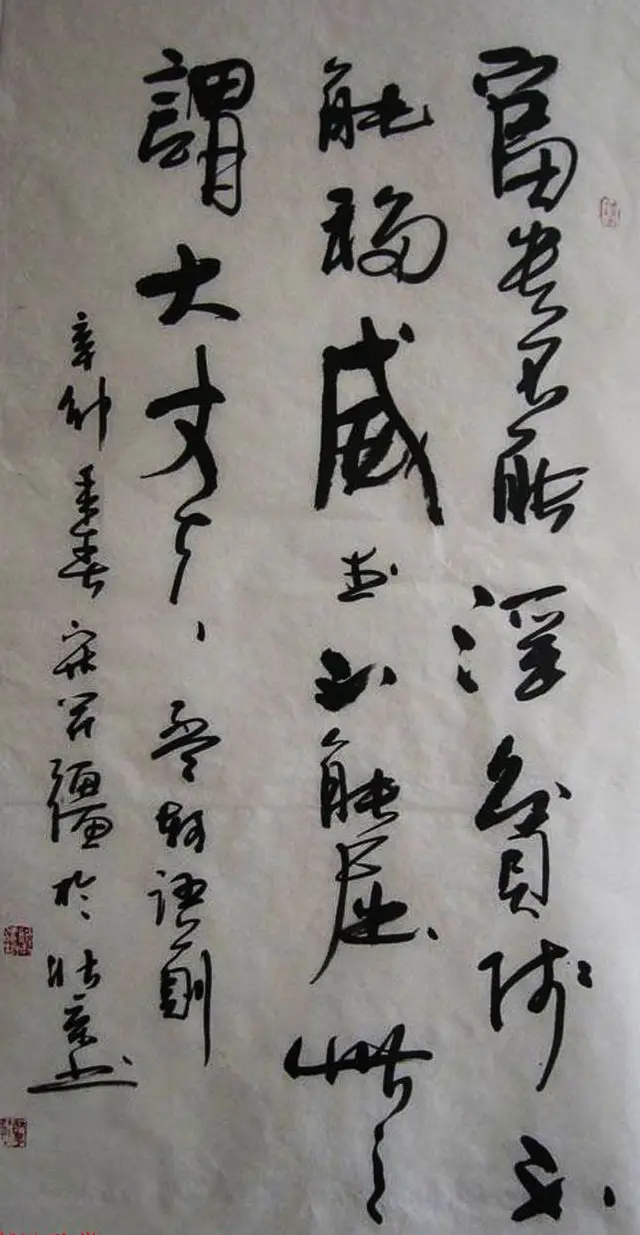 富貴不能淫貧賤不
能移威武不能屈此之
謂大丈夫孟軻語一則
辛卯季春宋疆於北京書